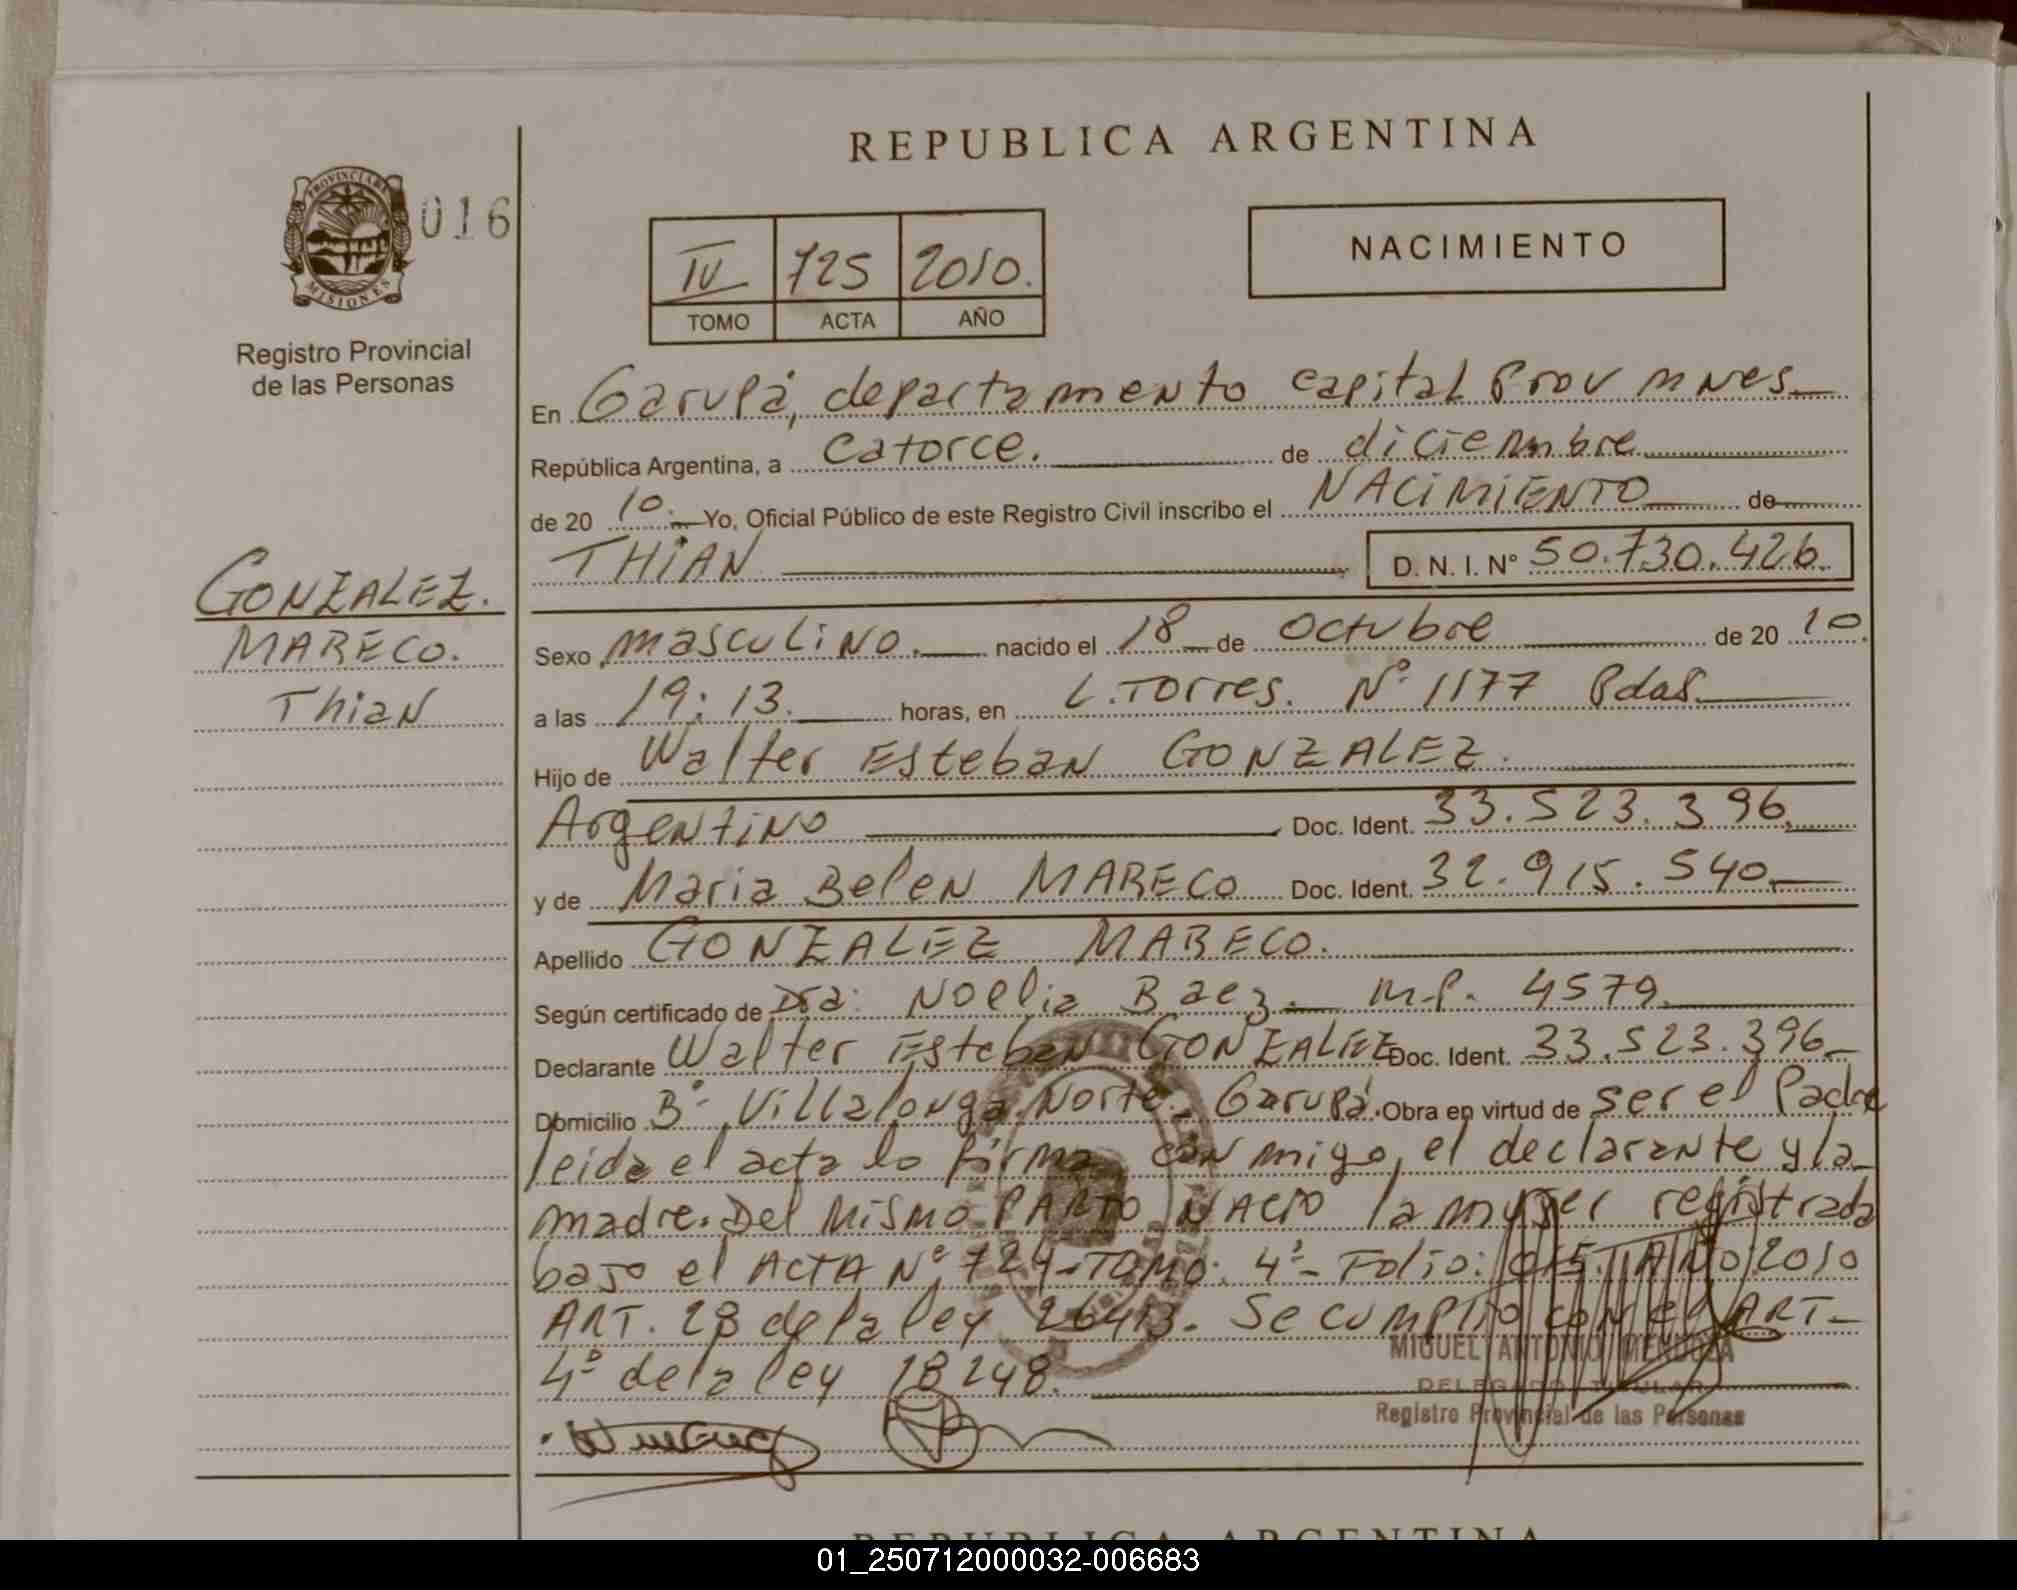 REPUBLICA ARGENTINA
PROVINCIA DE MISIONES
016
Registro Provincial
de las Personas
IV 725 2010.
TOMO ACTA AÑO
NACIMIENTO
En Garupá, departamento capital Prov Mnes
República Argentina, a catorce. de diciembre
de 20 10. Yo, Oficial Público de este Registro Civil inscribo el NACIMIENTO de
THIAN D. N. I. N° 50.730.426.
GONZALEZ.
MARECO.
Thian
Sexo masculino. nacido el 18 de Octubre de 20 10
a las 19:13. horas, en L. Torres. N° 1177 Pdas.
Hijo de Walter Esteban GONZALEZ.
Argentino Doc. Ident. 33.523.396.
y de Maria Belen MARECO Doc. Ident. 32.915.540
Apellido GONZALEZ MARECO.
Según certificado de Dra: Noelia Baez. M.P. 4579.
Declarante Walter Esteban GONZALEZ Doc. Ident. 33.523.396
Domicilio B° Villalonga Norte. Garupá. Obra en virtud de ser el Padre
leida el acta lo firma conmigo, el declarante y la
madre. Del Mismo PARTO NACIO la mujer registrada
bajo el ACTA N° 724-TOMO: 4°- Folio: 015. AÑO 2010
ART. 28 de la ley 26413. Se cumplio con el ART-
4° de la ley 18248.
MIGUEL ANTONIO MENDOZA
DELEGADO TITULAR
Registro Provincial de las Personas
REPUBLICA ARGENTINA
01_250712000032-006683